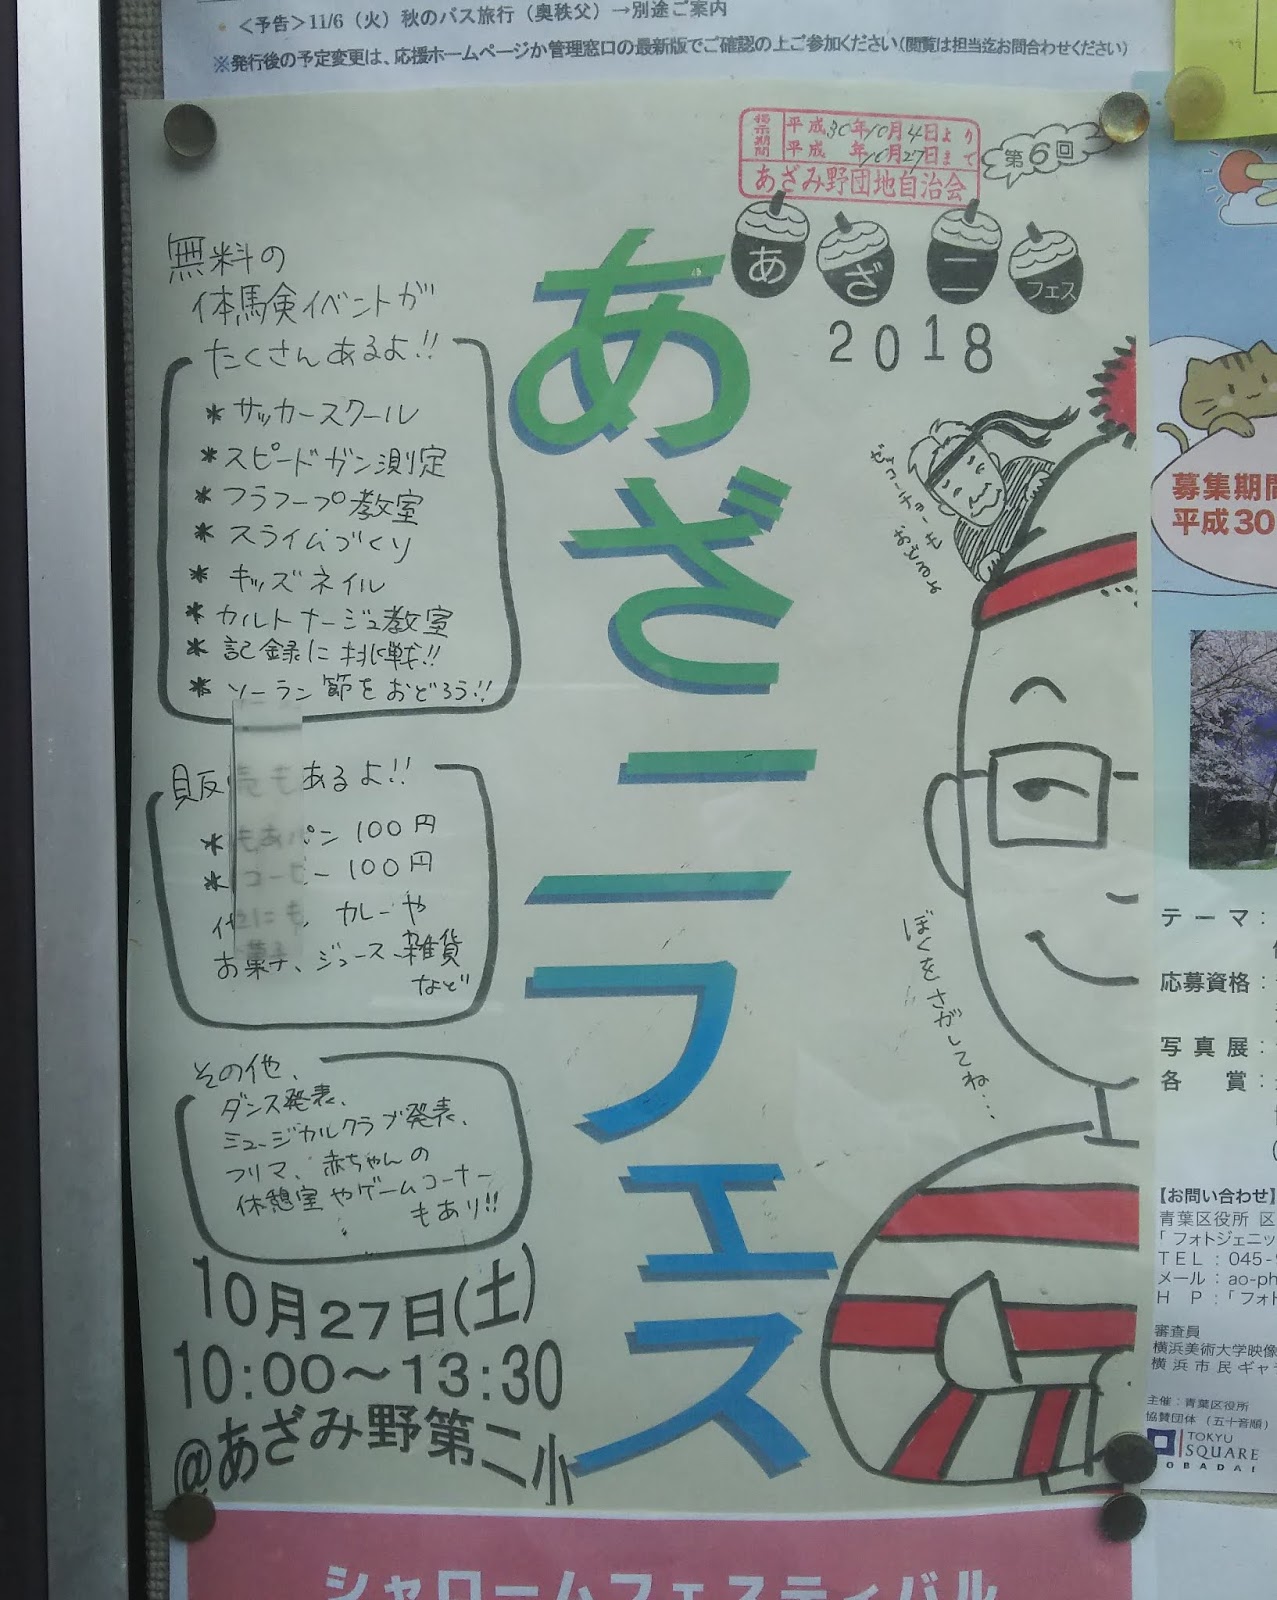 <予告>11/6（火）秋のバス旅行（奥秩父）→別途ご案内
※発行後の予定変更は、応援ホームページか管理窓口の最新版でご確認の上ご参加ください（閲覧は担当迄お問合わせください）
掲示期間
平成30年10月4日より
平成 年10月27日まで
あざみ野団地自治会
第6回
あざニフェス
2018
あざニフェス
無料の
体験イベントが
たくさんあるよ!!
＊サッカースクール
＊スピードガン測定
＊フラフープ教室
＊スライムづくり
＊キッズネイル
＊カルトナージュ教室
＊記録に挑戦!!
＊ソーラン節をおどろう!!
販売もあるよ!!
＊もあパン 100円
＊コーヒー 100円
他にも、カレーや
お菓子、ジュース、雑貨
など
その他、
ダンス発表、
ミュージカルクラブ発表、
フリマ、赤ちゃんの
休憩室やゲームコーナー
もあり!!
10月27日(土)
10:00～13:30
@あざみ野第二小
ゼッコーチョーも
おどるよ
ぼくをさがしてね…
募集期間
平成30
テーマ：
応募資格：
写真展：
各賞：
【お問い合わせ】
青葉区役所 区
「フォトジェニッ
TEL：045-
メール：ao-ph
HP：「フォト
審査員
横浜美術大学映像
横浜市民ギャラ
主催：青葉区役所
協賛団体（五十音順）
TOKYU
SQUARE
シャロームフェスティバル